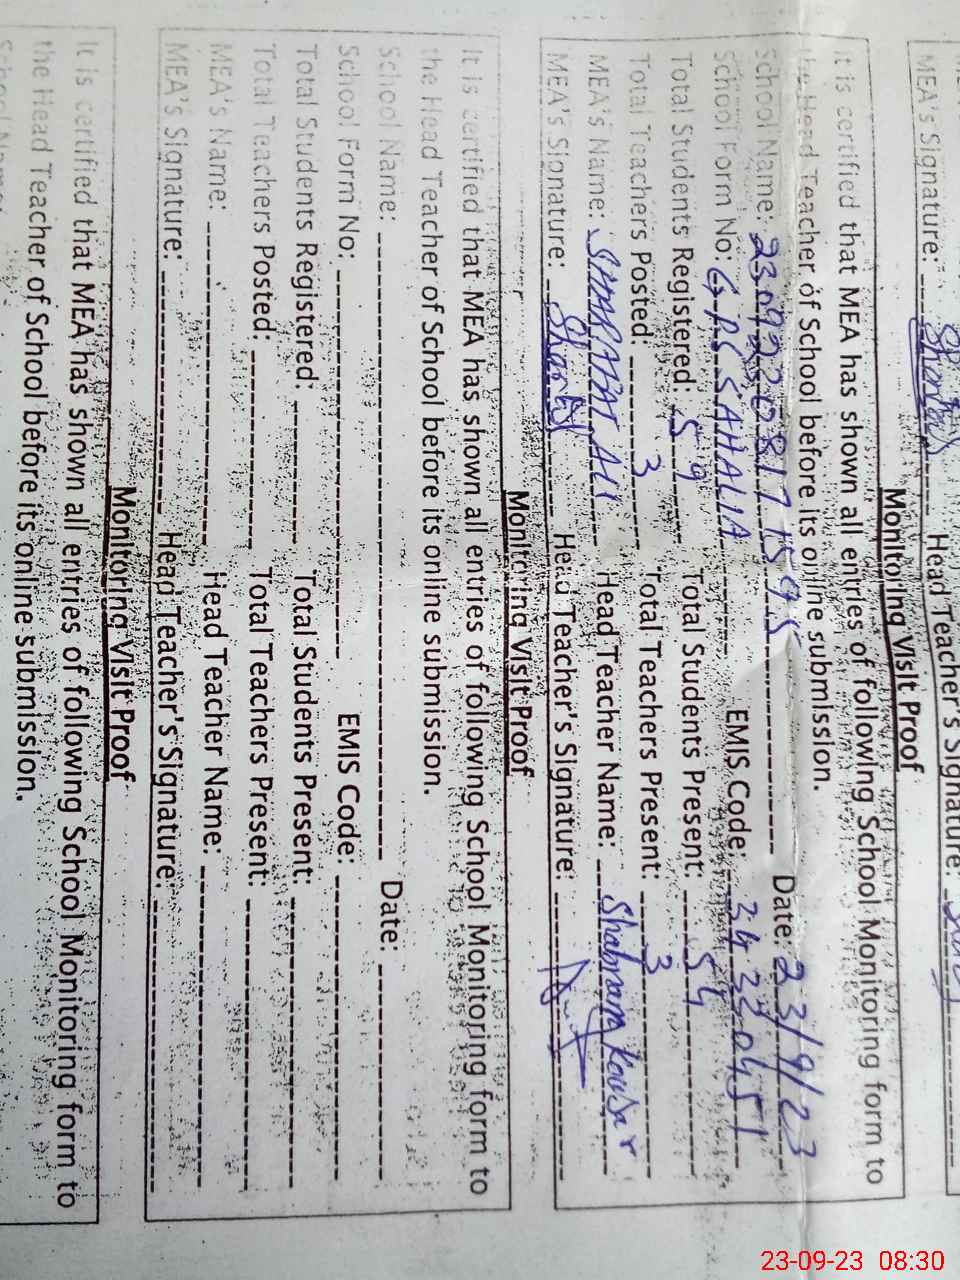 MEA's Signature: Head Teacher's Signature:
Monitoring Visit Proof
It is certified that MEA has shown all entries of following School Monitoring form to
the Head Teacher of School before its online submission.
School Name: 2309220817 1595 Date: 23/9/23
School Form No: GPS SAHALIA EMIS Code: 34230451
Total Students Registered: 59 Total Students Present: 54
Total Teachers Posted: 3 Total Teachers Present: 3
MEA's Name: SHARAFAT ALI Head Teacher Name: Shabnam Kousar
MEA's Signature: Head Teacher's Signature:
Monitoring Visit Proof
It is certified that MEA has shown all entries of following School Monitoring form to
the Head Teacher of School before its online submission.
School Name: Date:
School Form No: EMIS Code:
Total Students Registered: Total Students Present:
Total Teachers Posted: Total Teachers Present:
MEA's Name: Head Teacher Name:
MEA's Signature: Head Teacher's Signature:
Monitoring Visit Proof
It is certified that MEA has shown all entries of following School Monitoring form to
the Head Teacher of School before its online submission.
23-09-23 08:30